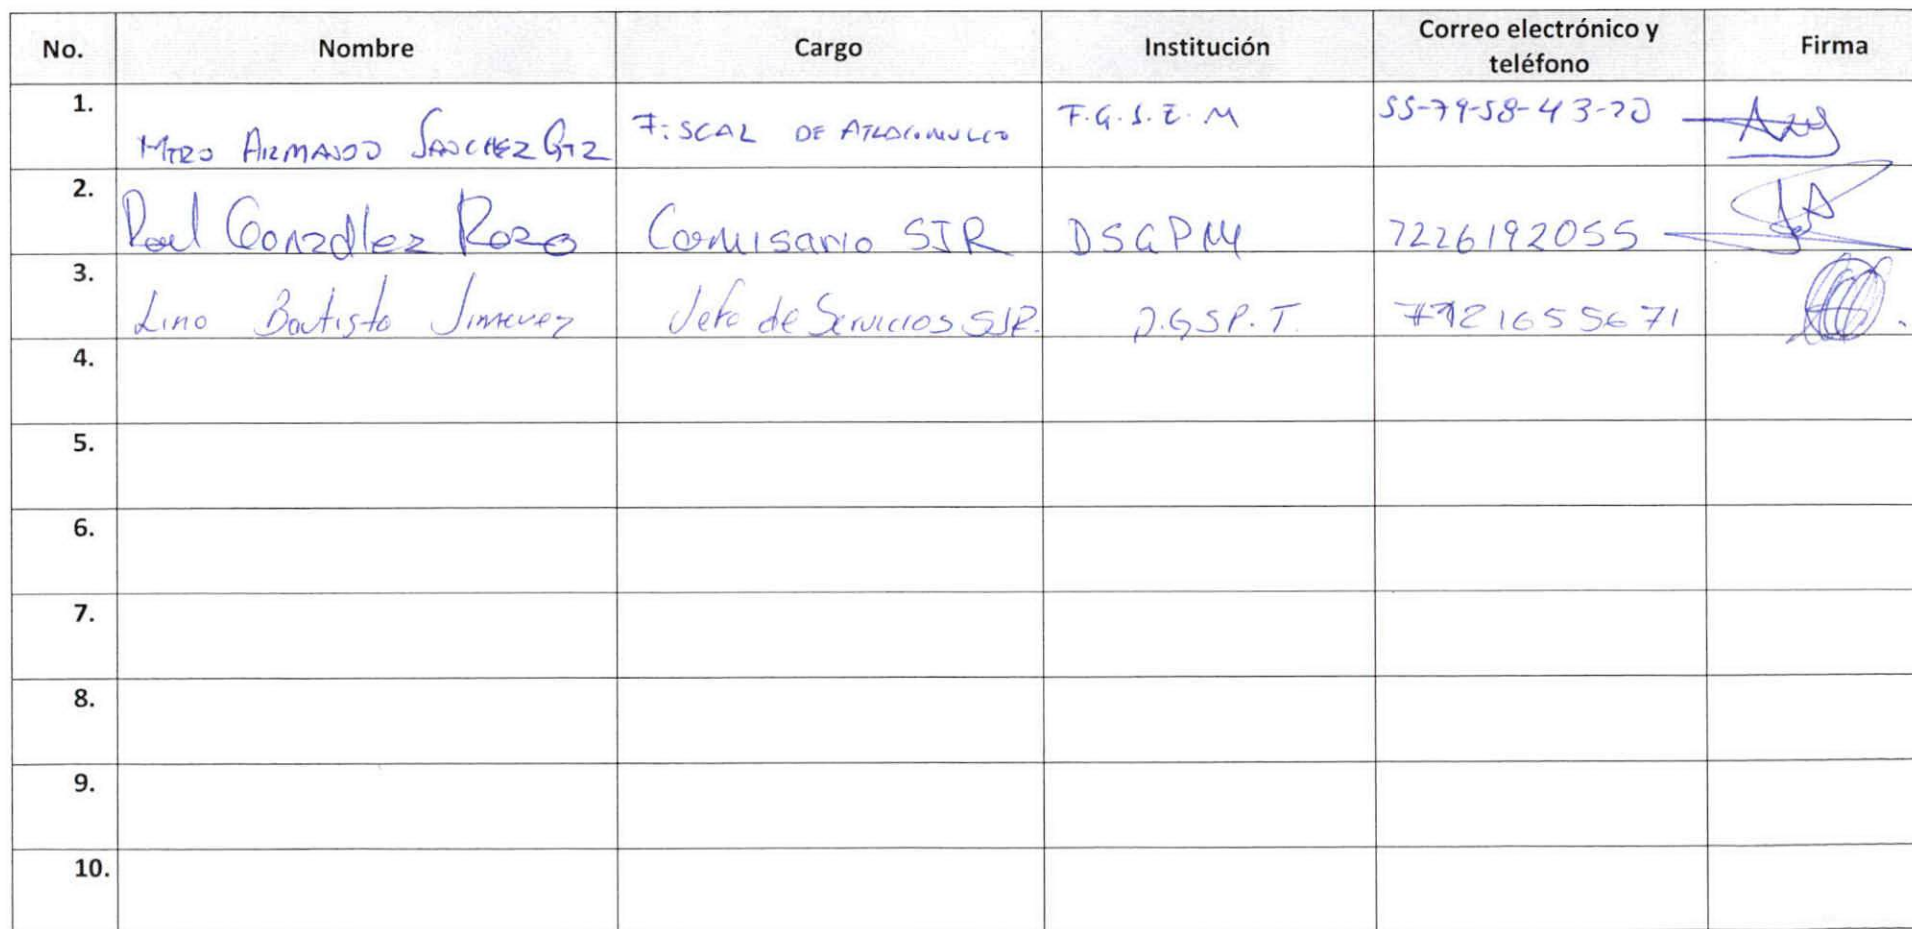 No. Nombre Cargo Institución Correo electrónico y teléfono Firma
1. Mtro Armando Sanchez Gtz Fiscal de Atlacomulco F.G.J.E.M 55-79-58-43-20
2. González Comisario SJR DSGPM 7226192055
3. Lino Bautista Jimenez Jefe de Servicios SJR. D.G.S.P.T. 7121655671
4.
5.
6.
7.
8.
9.
10.